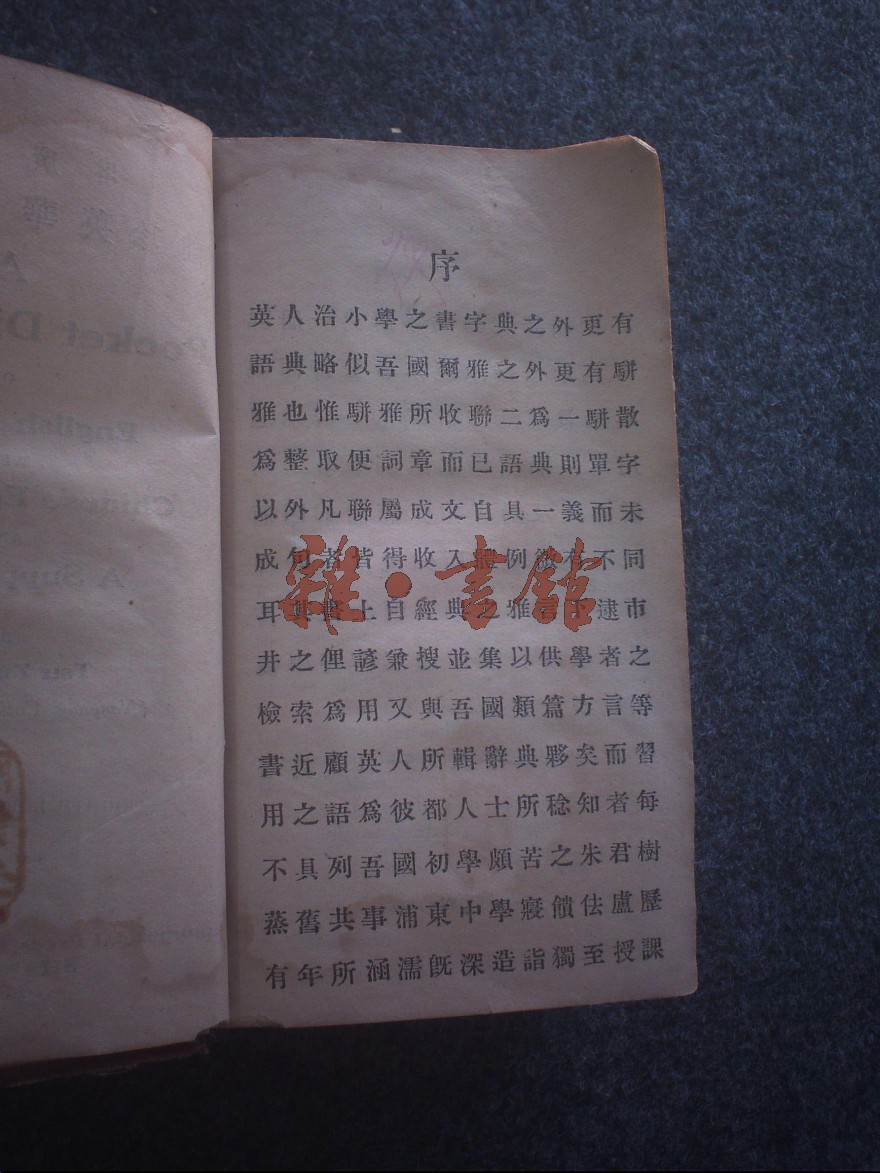 序
英人治小學之書字典之外更有
語典略似吾國爾雅之外更有駢
雅也惟駢雅所收聯二爲一駢散
爲整取便詞章而已語典則單字
以外凡聯屬成文自具一義而未
成句者皆得收入體例微有不同
耳其書上自經典之雅言下逮市
井之俚諺兼搜並集以供學者之
檢索爲用又與吾國類篇方言等
書近顧英人所輯辭典夥矣而習
用之語爲彼都人士所稔知者每
不具列吾國初學頗苦之朱君樹
蒸舊共事浦東中學寢饋佉盧歷
有年所涵濡旣深造詣獨至授課
雜·書館
Pocket Di
English